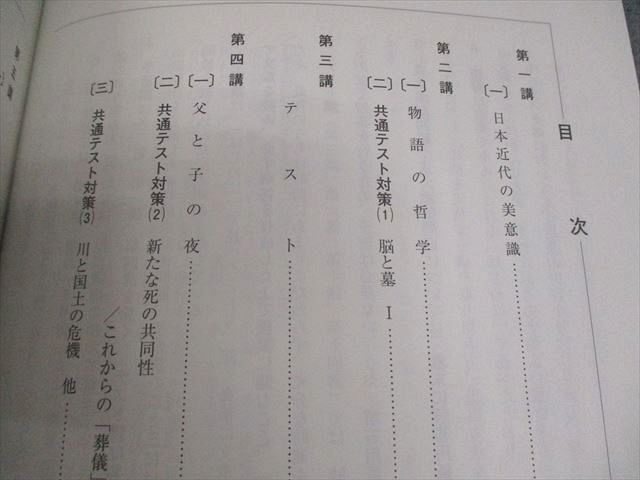 目次
第一講
〔一〕日本近代の美意識……………
第二講
〔一〕物語の哲学……………
〔二〕共通テスト対策(1) 脳と墓 Ⅰ……………
第三講
テスト……………
第四講
〔一〕父と子の夜……………
〔二〕共通テスト対策(2) 新たな死の共同性
／これからの「葬儀」
〔三〕共通テスト対策(3) 川と国土の危機 他……………